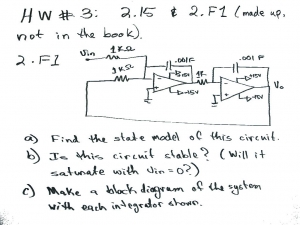 HW #3: 2.15 & 2.F1 (made up,
not in the book).
2.F1 Vin 1KΩ .001F .001F
1KΩ +15V 1K +15V Vo
-15V -15V
a) Find the state model of this circuit.
b) Is this circuit stable? (Will it
saturate with Vin=0?)
c) Make a block diagram of the system
with each integrator shown.